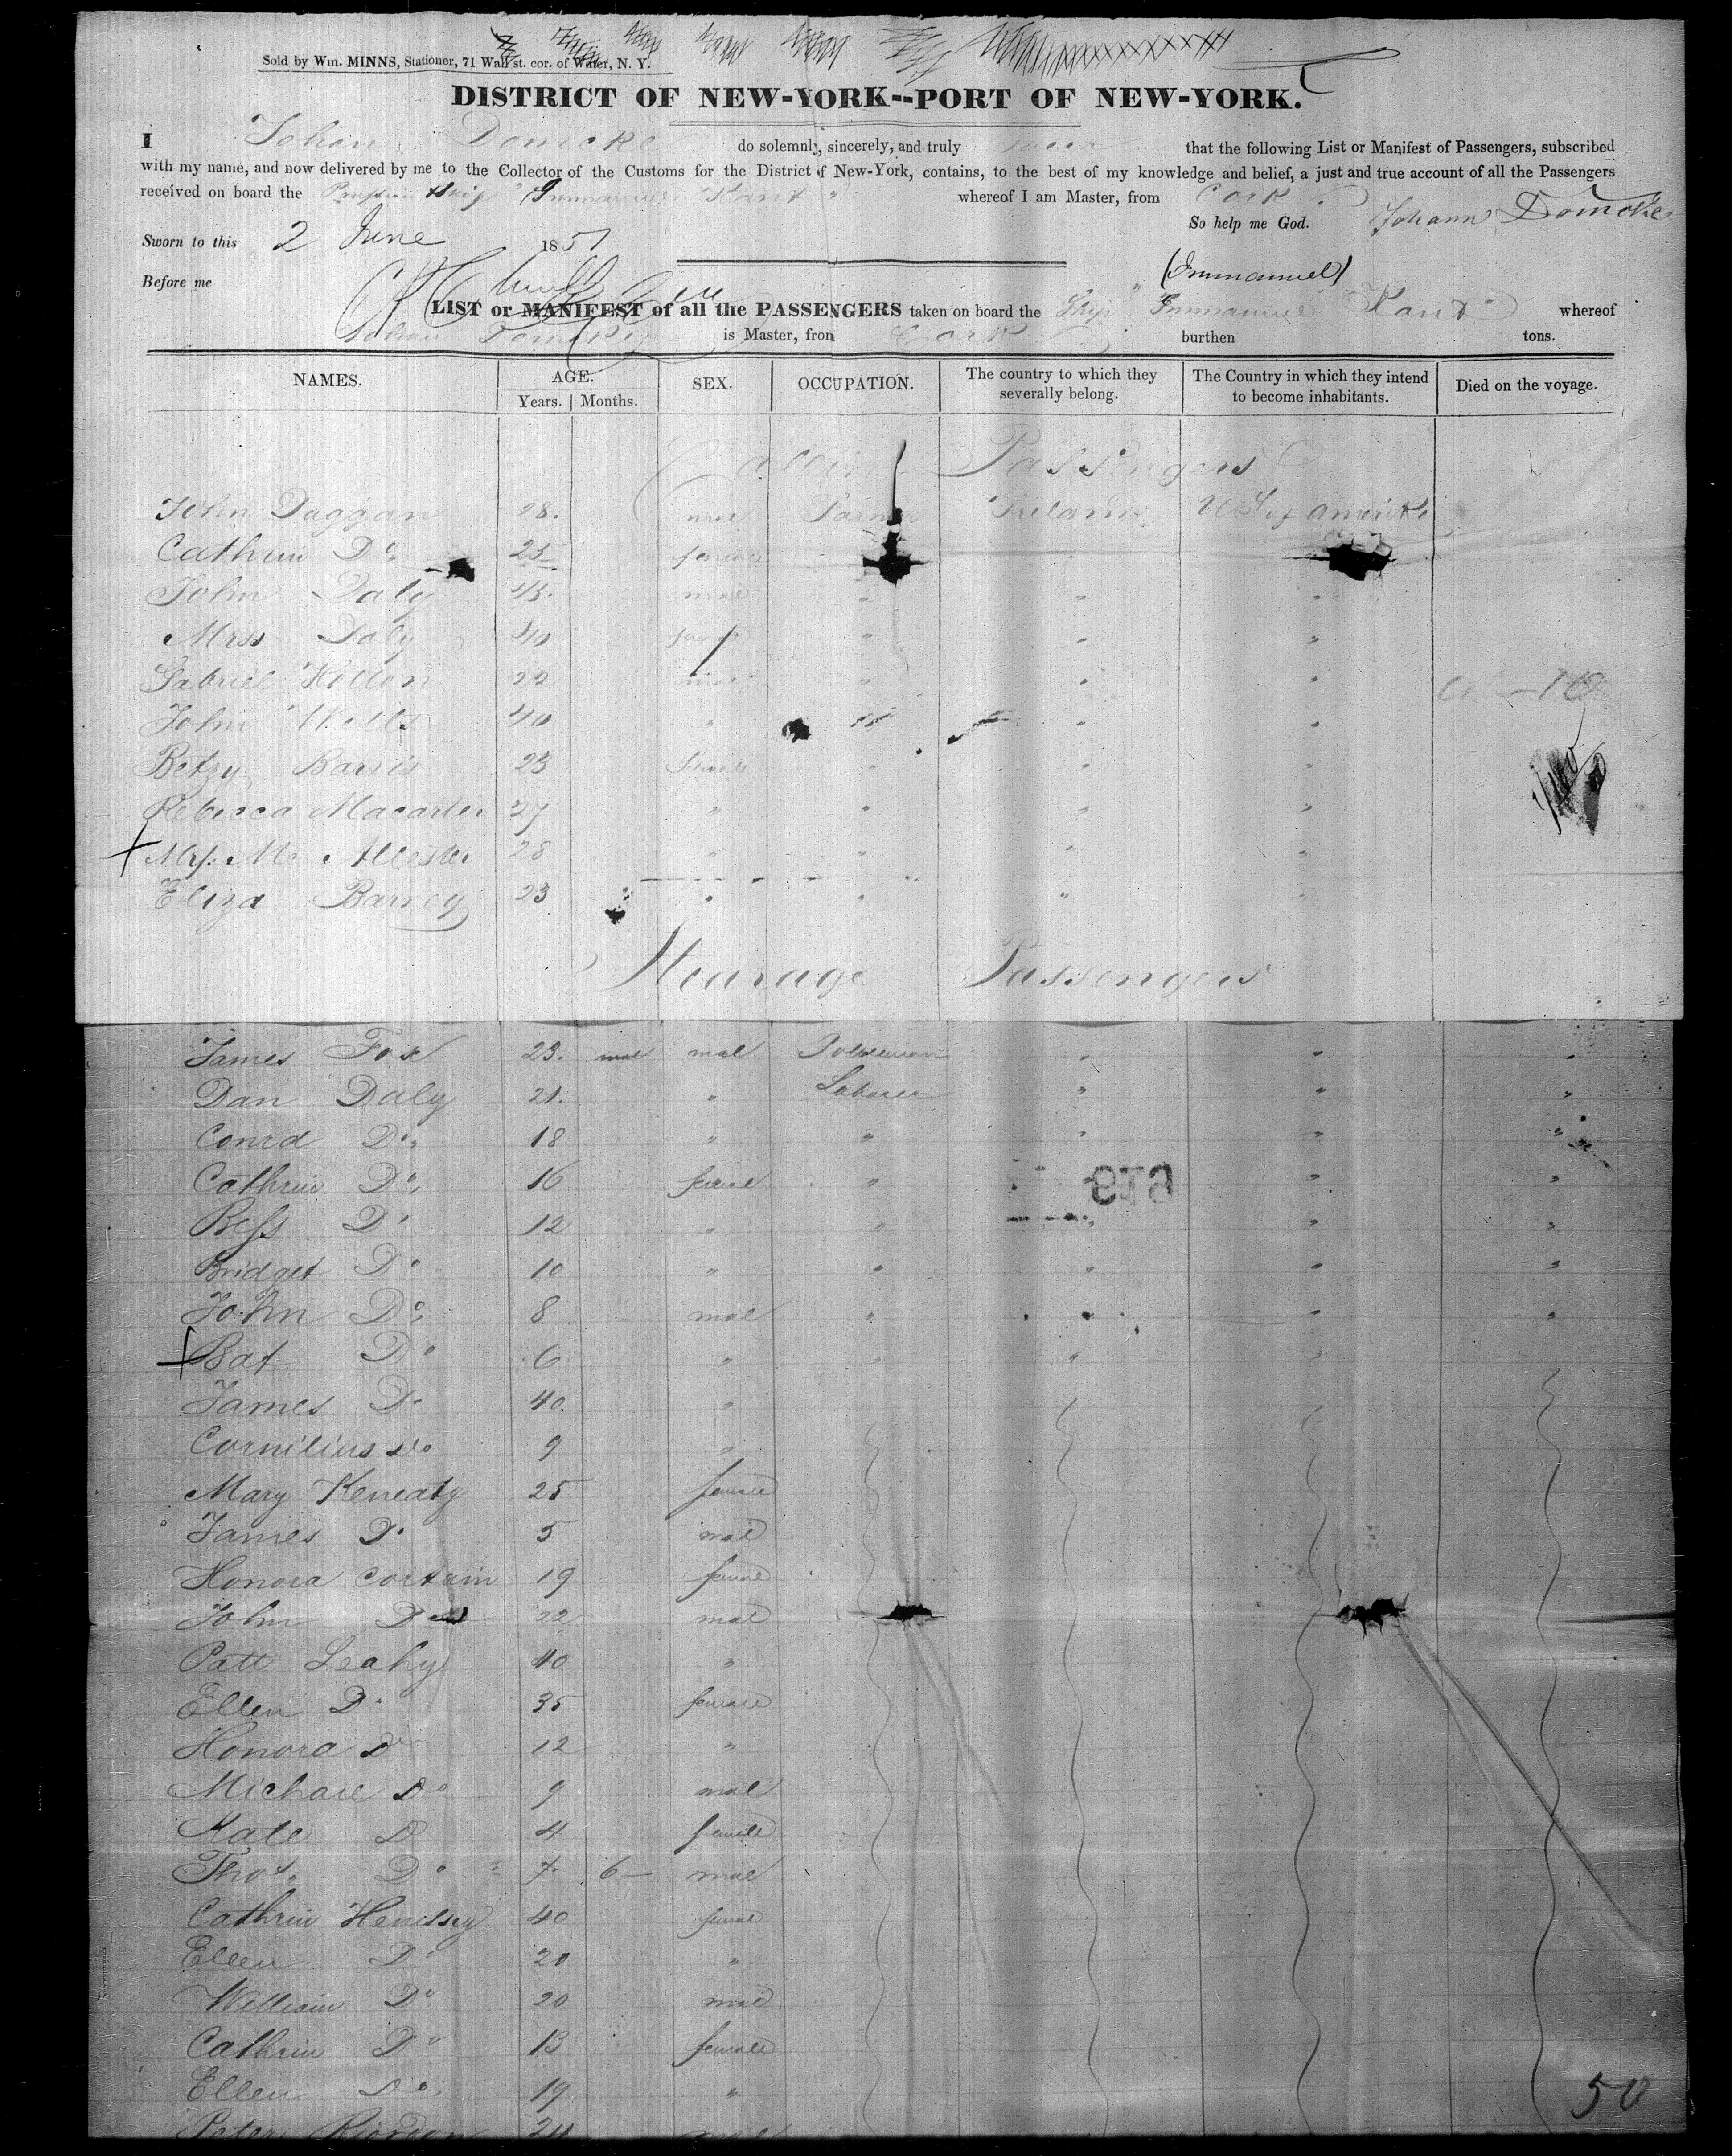 Sold by Wm. MINNS, Stationer, 71 Wall st. cor. of Water, N. Y.
DISTRICT OF NEW-YORK--PORT OF NEW-YORK.
I Johan Domcke do solemnly, sincerely, and truly swear that the following List or Manifest of Passengers, subscribed
with my name, and now delivered by me to the Collector of the Customs for the District of New-York, contains, to the best of my knowledge and belief, a just and true account of all the Passengers
received on board the Ship Immanuel Kant whereof I am Master, from Cork
So help me God. Johann Domcke
Sworn to this 2 June 1851
Before me
(Immanuel)
LIST or MANIFEST of all the PASSENGERS taken on board the Ship Immanuel Kant whereof
Johan Domcke is Master, from Cork burthen tons.
NAMES. AGE. Years. Months. SEX. OCCUPATION. The country to which they severally belong. The Country in which they intend to become inhabitants. Died on the voyage.
Passengers
John Duggan 28. mal Farmer Ireland
Cathrin Do 25 female
John Daly 45. mal
Mrss Daly 40 female
Gabriel 22 mal
John Wells 40 "
Betzy Barris 23 female
Rebecca Macarter 27 "
Mrs. Mc Allester 28 "
Eliza Barney 23 "
Stearage Passengers
James Fox 23. mal mal Policeman "
Dan Daly 21. " Laborer " " "
Conrd Do 18 " " " " "
Cathrin Do 16 femal " " "
Bess Do 12 " " " " "
Bridget Do 10 " " " " "
John Do 8 mal " " " "
Bat Do 6 " " " "
James Do 40. "
Cornilius do 9 "
Mary Keneaty 25 female
James Do 5 mal
Honora Cortain 19 femal
John Do 22 mal
Patt Leahy 40 "
Ellen Do 35 female
Honora Do 12 "
Michael Do 9 mal
Kate D 4 female
Thos. Do 7 6 mal
Cathrin Henessy 40 femal
Ellen Do 20 "
William Do 20 mal
Cathrin Do 13 female
Ellen Do 19 "
Peter Riordan 24 mal
50